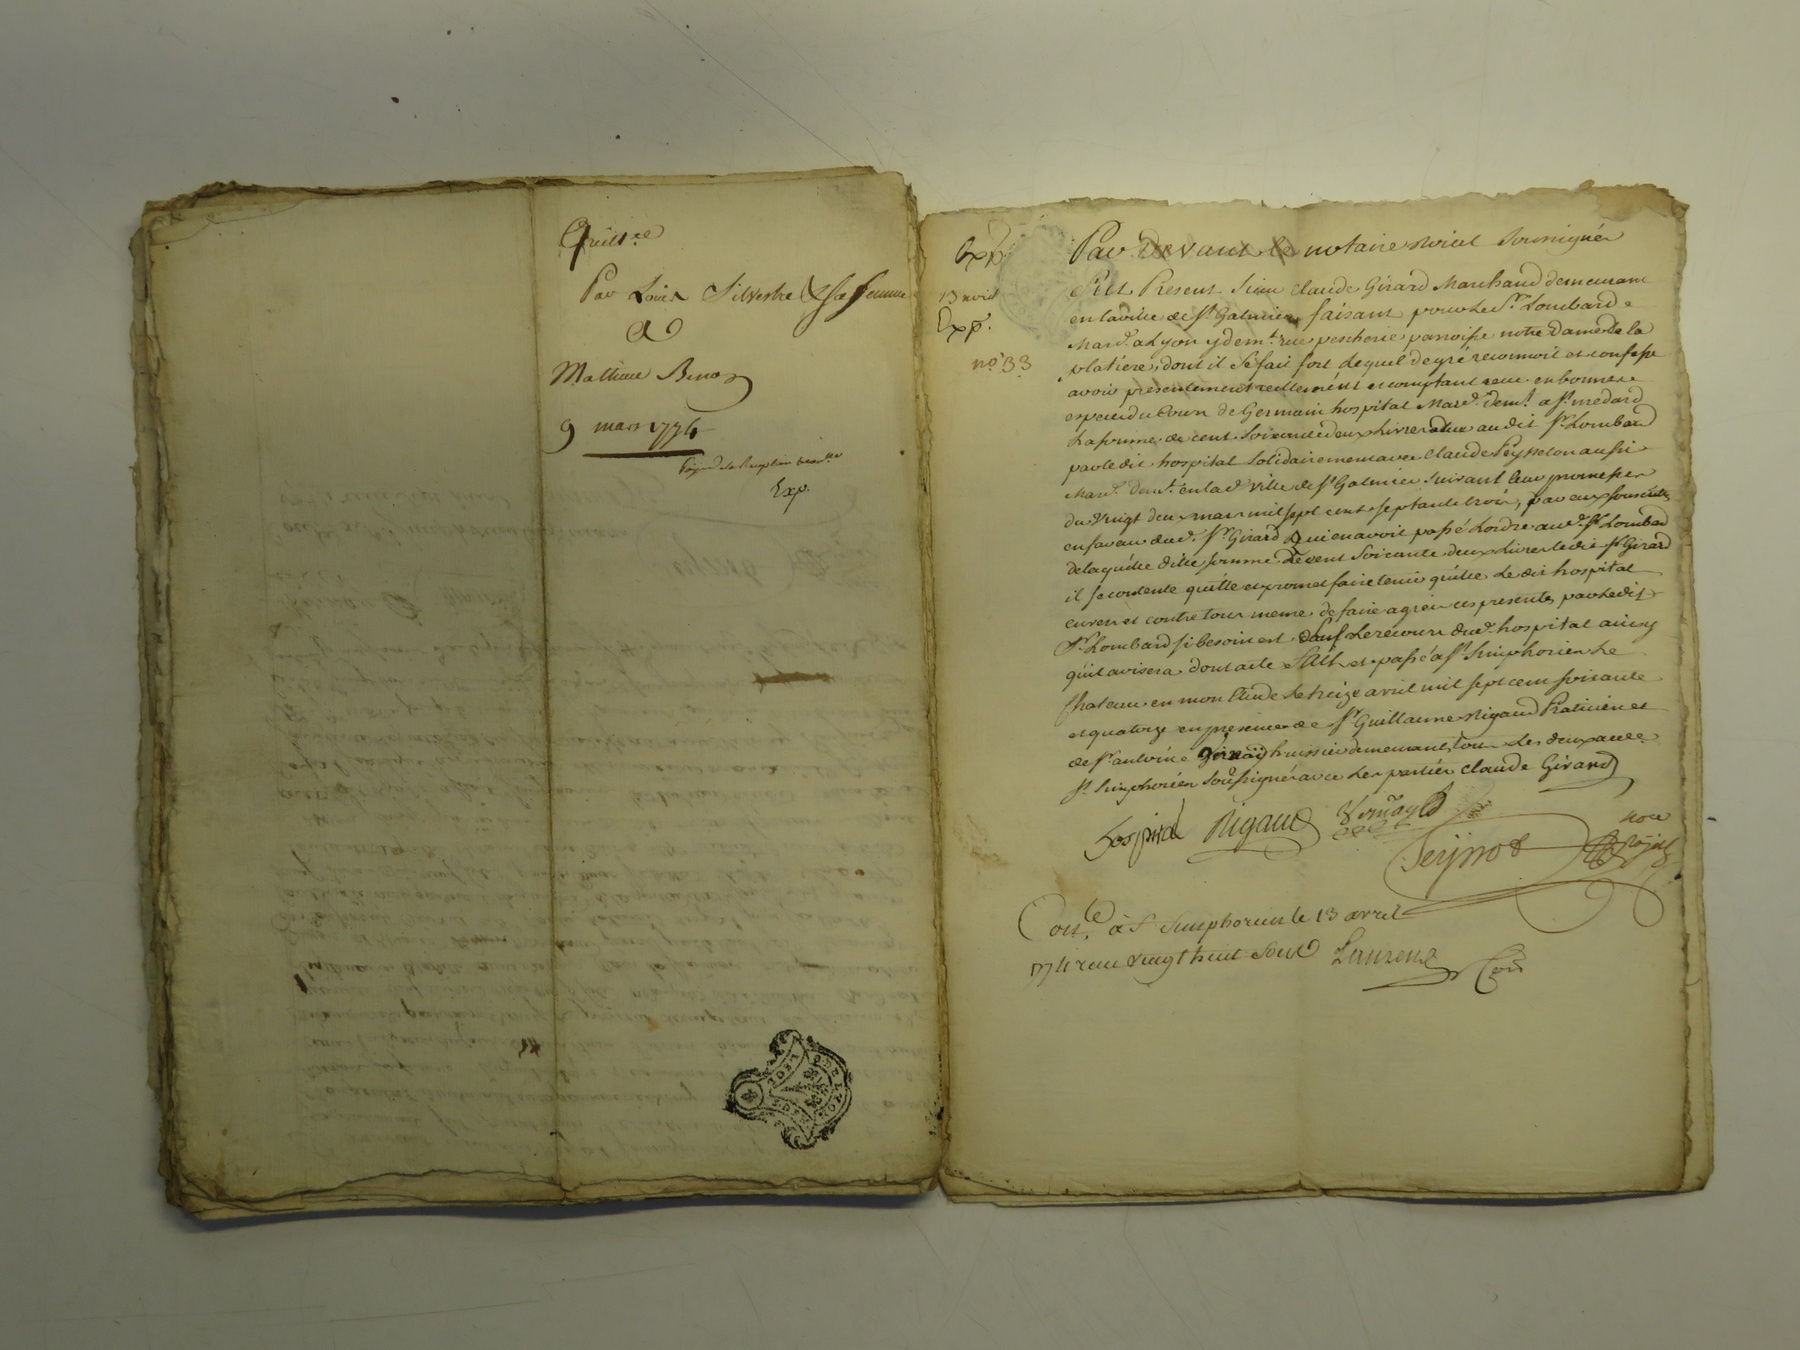 Quitt.ce
Par Louis Silvestre & sa femme
A
Mathieu Benoz
9 mars 1774
Exp.
GEN DE LYON
Exp.
13 avril
Exp.
no. 33
Par devant le notaire royal soussigné
fut Present Sieur Claude Girard Marchand demeurant
en la ville de St Galmier faisant pour le Sr Lombard
Mard. a Lyon y demt. rue pescherie parroisse notre Dame de la
platiere, dont il se fait fort lequel de gré reconnoit et confesse
avoir présentement reellement et comptant receu en bonnes
especes du cours de Germain hospital Mard. demt. a St medard
La somme de cent soixante deux Livres due au dit Sr Lombard
par ledit hospital solidairement avec Claude Peysselon aussi
Mard. demt. en lad. ville de St Galmier suivant leur promesse
du vingt deux mars mil sept cent septante trois, par eux souscritte
en faveur dud. Sr Girard qui en avoit passé Lordre aud. Sr Lombard
de laquelle ditte somme de cent soixante deux Livres ledit Sr Girard
il se contente quitte et promet faire tenir quitte Le dit hospital
envers et contre tous meme de faire agréer ces presentes par Ledit
Sr Lombard si besoin est sauf Le recours dud. hospital ainsy
qu'il avisera dont acte Fait et passé a St Simphorien Le
Chateau en mon Etude Le treize avril mil sept cent soixante
et quatorze en presence de Sr Guillaume Rigaud Praticien et
de Sr antoine huissier demeurant tous Les deux aud.
St Simphorien soussignés avec Les parties Claude Girard
hospital Rigaud
Peyssot nore royal
Con.lé à St Simphorien le 13 avril
1774 reçu vingt huit sous Laurent